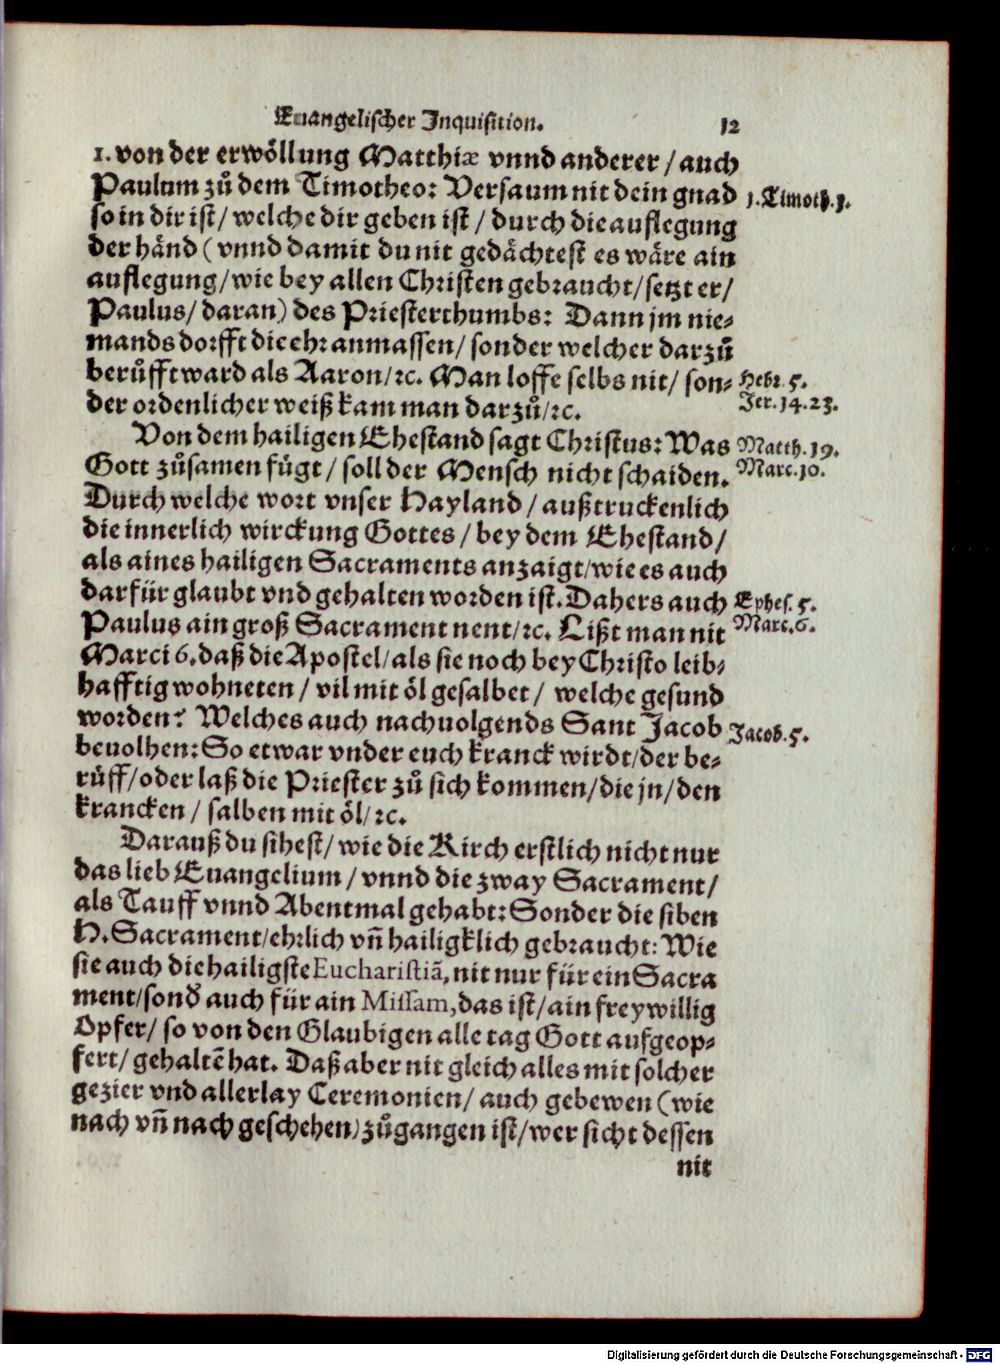 Euangelischer Inquisition. 12
1. von der erwöllung Matthiæ vnnd anderer / auch
Paulum zů dem Timotheo: Versaum nit dein gnad
1. Timoth. 1.
so in dir ist / welche dir geben ist / durch die auflegung
der händ (vnnd damit du nit gedächtest es wäre ain
auflegung / wie bey allen Christen gebraucht / setzt er /
Paulus / daran) des Priesterthumbs: Dann jm nie-
mands dorfft die ehr anmassen / sonder welcher darzů
berůfft ward als Aaron / ꝛc. Man loffe selbs nit / son-
Hebr. 5.
der ordenlicher weiß kam man darzů / ꝛc.
Jer. 14. 23.
Von dem hailigen Ehestand sagt Christus: Was
Matth. 19.
Gott zůsamen fůgt / soll der Mensch nicht schaiden.
Marc. 10.
Durch welche wort vnser Hayland / außtruckenlich
die innerlich wirckung Gottes / bey dem Ehestand /
als aines hailigen Sacraments anzaigt / wie es auch
darfür glaubt vnd gehalten worden ist. Dahers auch
Ephes. 5.
Paulus ain groß Sacrament nent / ꝛc. Lißt man nit
Marc. 6.
Marci 6. daß die Apostel / als sie noch bey Christo leib-
hafftig wohneten / vil mit öl gesalbet / welche gesund
worden? Welches auch nachuolgends Sant Jacob
Jacob. 5.
beuolhen: So etwar vnder euch kranck wirdt / der be-
růff / oder laß die Priester zů sich kommen / die jn / den
krancken / salben mit öl / ꝛc.
Darauß du sihest / wie die Kirch erstlich nicht nur
das lieb Euangelium / vnnd die zway Sacrament /
als Tauff vnnd Abentmal gehabt: Sonder die siben
H. Sacrament / ehrlich vñ hailigklich gebraucht: Wie
sie auch die hailigste Eucharistiā, nit nur für ein Sacra
ment / sonď auch für ain Missam, das ist / ain freywillig
Opfer / so von den Glaubigen alle tag Gott aufgeop-
fert / gehaltē hat. Daß aber nit gleich alles mit solcher
gezier vnd allerlay Ceremonien / auch gebewen (wie
nach vñ nach geschehen) zůgangen ist / wer sicht dessen
nit
Digitalisierung gefördert durch die Deutsche Forschungsgemeinschaft - DFG